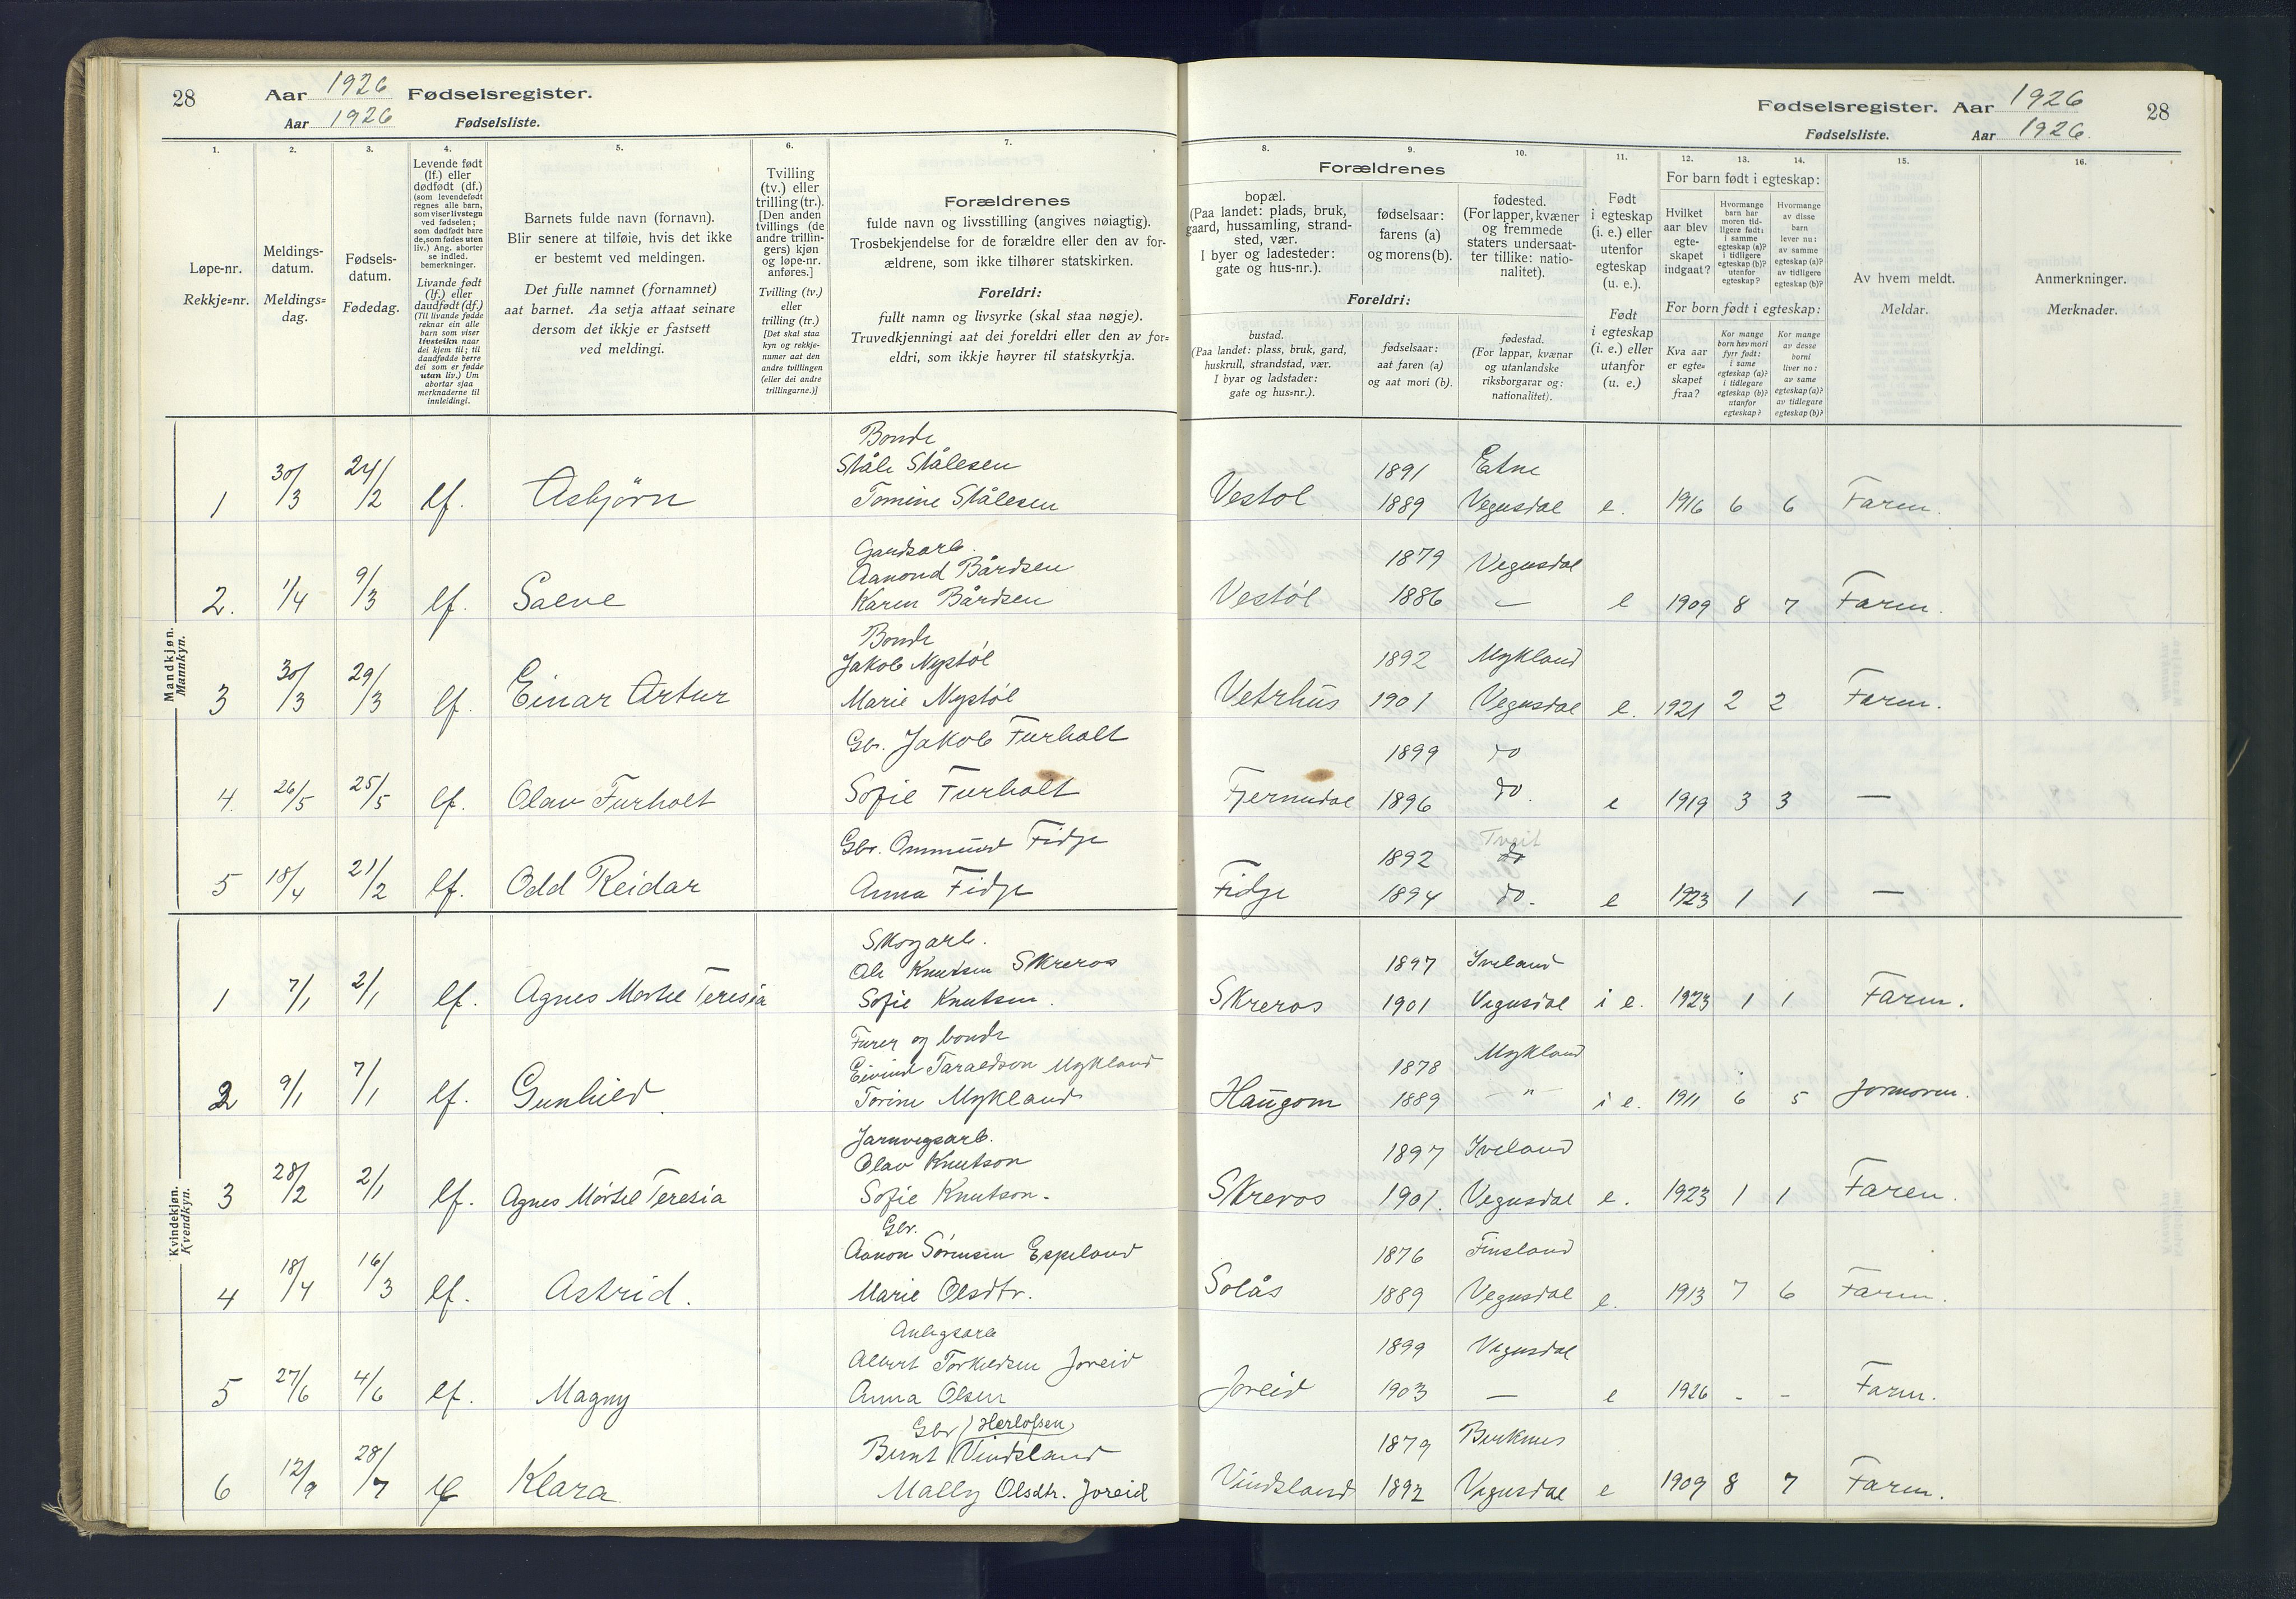 28
Aar 1926 Fødselsregister.
Aar 1926 Fødselsliste.
Fødselsregister. Aar 1926
28
Fødselsliste. Aar 1926.
1.
2.
3.
4.
5.
6.
7.
8.
9.
10.
11.
12.
13.
14.
15.
16.
Løpe-nr.
Rekkje=nr.
Meldings-
datum.
Meldings=
dag.
Fødsels-
datum.
Fødedag.
Levende født
(lf.) eller
dødfødt (df.)
(som levendefødt
regnes alle barn,
som viser livstegn
ved fødselen;
som dødfødt bare
de, som fødes uten
liv.) Ang. aborter
se indled.
bemerkninger.
Livande født
(lf.) eller
daudfødt (df.)
(Til livande fødde
reknar ein alle
barn som viser
livsteikn naar
dei kjem til; til
daudfødde berre
dei som er fødde
utan liv.) Um
abortar sjaa
merknaderne til
innleidingi.
Barnets fulde navn (fornavn).
Blir senere at tilføie, hvis det ikke
er bestemt ved meldingen.
Det fulle namnet (fornamnet)
aat barnet. Aa setja attaat seinare
dersom det ikkje er fastsett
ved meldingi.
Tvilling
(tv.) eller
trilling (tr.).
[Den anden
tvillings (de
andre trillin-
gers) kjøn
og løpe-nr.
anføres.]
Tvilling (tv.)
eller
trilling (tr.)
[Det skal staa
kyn og rekkje-
numer aat den
andre tvillingen
(eller dei andre
trillingarne.)]
Forældrenes
fulde navn og livsstilling (angives nøiagtig).
Trosbekjendelse for de forældre eller den av for-
ældrene, som ikke tilhører statskirken.
Foreldri:
fullt namn og livsyrke (skal staa nøgje).
Truvedkjenningi aat dei foreldri eller den av for=
eldri, som ikkje høyrer til statskyrkja.
Forældrenes
bopæl.
(Paa landet: plads, bruk,
gaard, hussamling, strand-
sted, vær.
I byer og ladesteder:
gate og hus-nr.).
fødselsaar:
farens (a)
og morens (b).
fødested.
(For lapper, kvæner
og fremmede
staters undersaat-
ter tillike: natio-
nalitet).
Foreldri:
bustad.
(Paa landet: plass, bruk, gard,
huskrull, strandstad, vær.
I byar og ladstader:
gate og hus=nr.).
fødselsaar:
aat faren (a)
og aat mori (b).
fødestad.
(For lappar, kvænar
og utanlandske
riksborgarar og:
nationalitet).
Født
i egteskap
(i. e.) eller
utenfor
egteskap
(u. e.).
Født
i egteskap
(i. e.) eller
utanfor
egteskap
(u. e.)
For barn født i egteskap:
Hvilket
aar blev
egte-
skapet
indgaat?
Hvormange
barn har
moren tid-
ligere født:
i samme
egteskap (a)?
i tidligere
egteskap (b)?
utenfor
egteskap?
Hvormange
av disse
barn
lever nu:
av samme
egteskap (a)?
av tidligere
egteskap (b)?
For born født i egteskap:
Kva aar
er egte=
skapet
fraa?
Kor mange
born hev mori
fyrr født:
i same
egteskap (a)?
i tidlegare
egteskap (b)?
utanfor
egteskap?
Kor mange
av desse
borni
liver no:
av same
egteskap (a)?
av tidlegare
egteskap (b)?
Av hvem meldt.
Meldar.
Anmerkninger.
Merknader.
Mandkjøn.
Mannkyn.
Bonde
Ståle Stålesen 1891 Etne
1 30/3 24/2 lf. Asbjørn Tomine Stålesen Vestøl 1889 Vegusdal e. 1916 6 6 Faren.
Gardsarb.
Aanond Bårdsen 1879 Vegusdal
2. 1/4 9/3 lf. Salve Karen Bårdsen Vestøl 1886 — e 1909 8 7 Faren.
Bonde
Jakob Nystøl 1892 Mykland
3 30/3 29/3 lf. Einar Artur Marie Nystøl Vetrhus 1901 Vegusdal e. 1921 2 2 Faren.
Gbr. Jakob Furholt 1899 do
4. 26/5 25/5 lf. Olav Furholt Sofie Furholt 1896 do. e 1919 3 3 —
Gbr. Ommund Fidje 1892 Tveit do
5 18/4 21/2 lf. Odd Reidar Anna Fidje Fidje 1894 do. e 1923 1 1 —
Kvindekjøn.
Kvendkyn.
Skogarb.
Ole Knutsen Skreros 1897 Iveland
1 7/1 2/1 lf. Agnes Mertel Teresia Sofie Knutsen. Skreros 1901 Vegusdal i e. 1923 1 1 Faren.
Furer og bonde
Eivind Taraldson Mykland 1878 Mykland
2 9/1 7/1 lf. Gunhild. Torine Mykland Haugom 1889 — " — i e. 1911 6 5 Jormoren.
Jarnvegsarb.
Olav Knutson 1897 Iveland
3 28/2 2/1 lf. Agnes Mørtel Teresia Sofie Knutson. Skreros 1901. Vegusdal e. 1923 1 1 Faren.
Gbr.
Aanon Sørensen Espeland 1876 Finsland
4 18/4 16/3 lf. Astrid. Marie Olsdtr. Solås 1889 Vegusdal e. 1913 7 6 Faren.
Anlegsarb
Albert Torkildsen Joreid 1899 Vegusdal
5 27/6 4/6 lf. Magny Anna Olsen Joreid 1903 — e 1926 - - Faren.
Gbr (Herlofsen)
Bernt Vindsland 1879 Birkenes
6 12/9 28/7 lf Klara Mally Olsdtr. Joreid Vindsland 1892 Vegusdal e 1909 8 7 Faren.